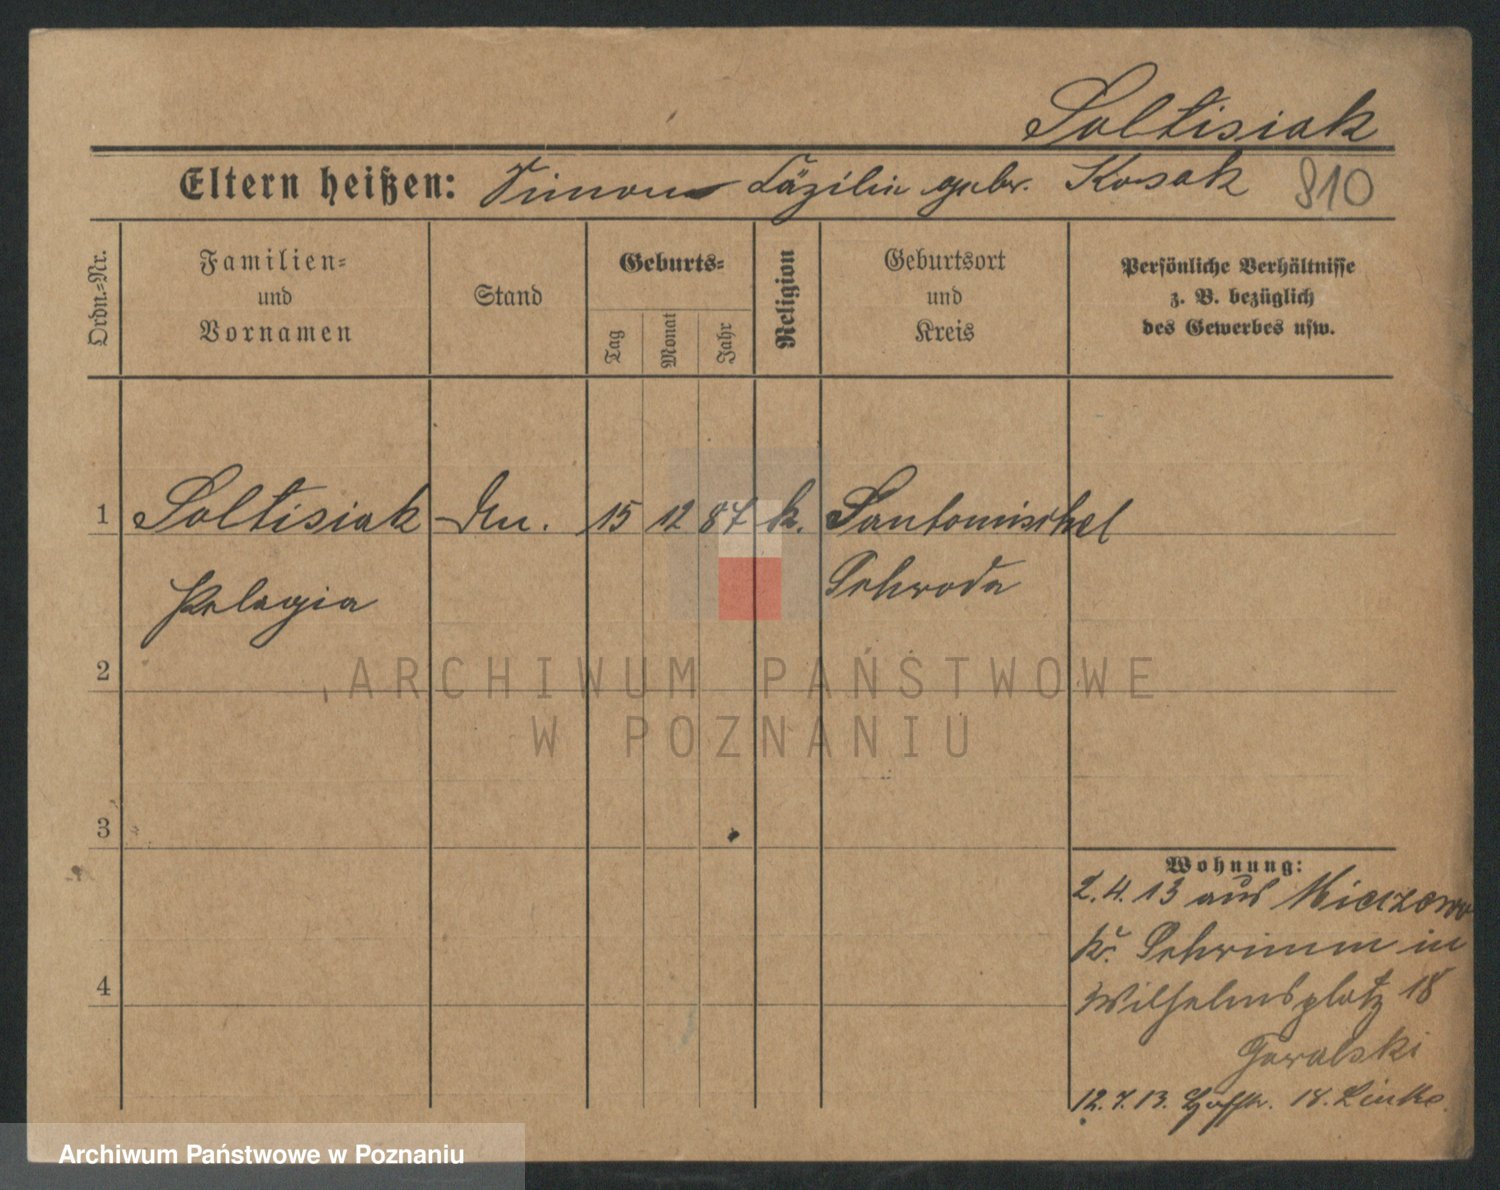 Soltisiak
Eltern heißen: Simon Cäzilie gebr. Kosak 810
Ordn.-Nr.
Familien- und Vornamen
Stand
Geburts-
Tag Monat Jahr
Religion
Geburtsort und Kreis
Persönliche Verhältnisse
z. B. bezüglich
des Gewerbes usw.
1 Soltisiak 15 12 87 k. Santomischel
Pelagia Schroda
2
3
4
Wohnung:
2.4.13 aus
Kr. Schrimm in
Wilhelmsplatz 18
Goralski
12.7.13. 18. Linke
ARCHIWUM PAŃSTWOWE
W POZNANIU
Archiwum Państwowe w Poznaniu